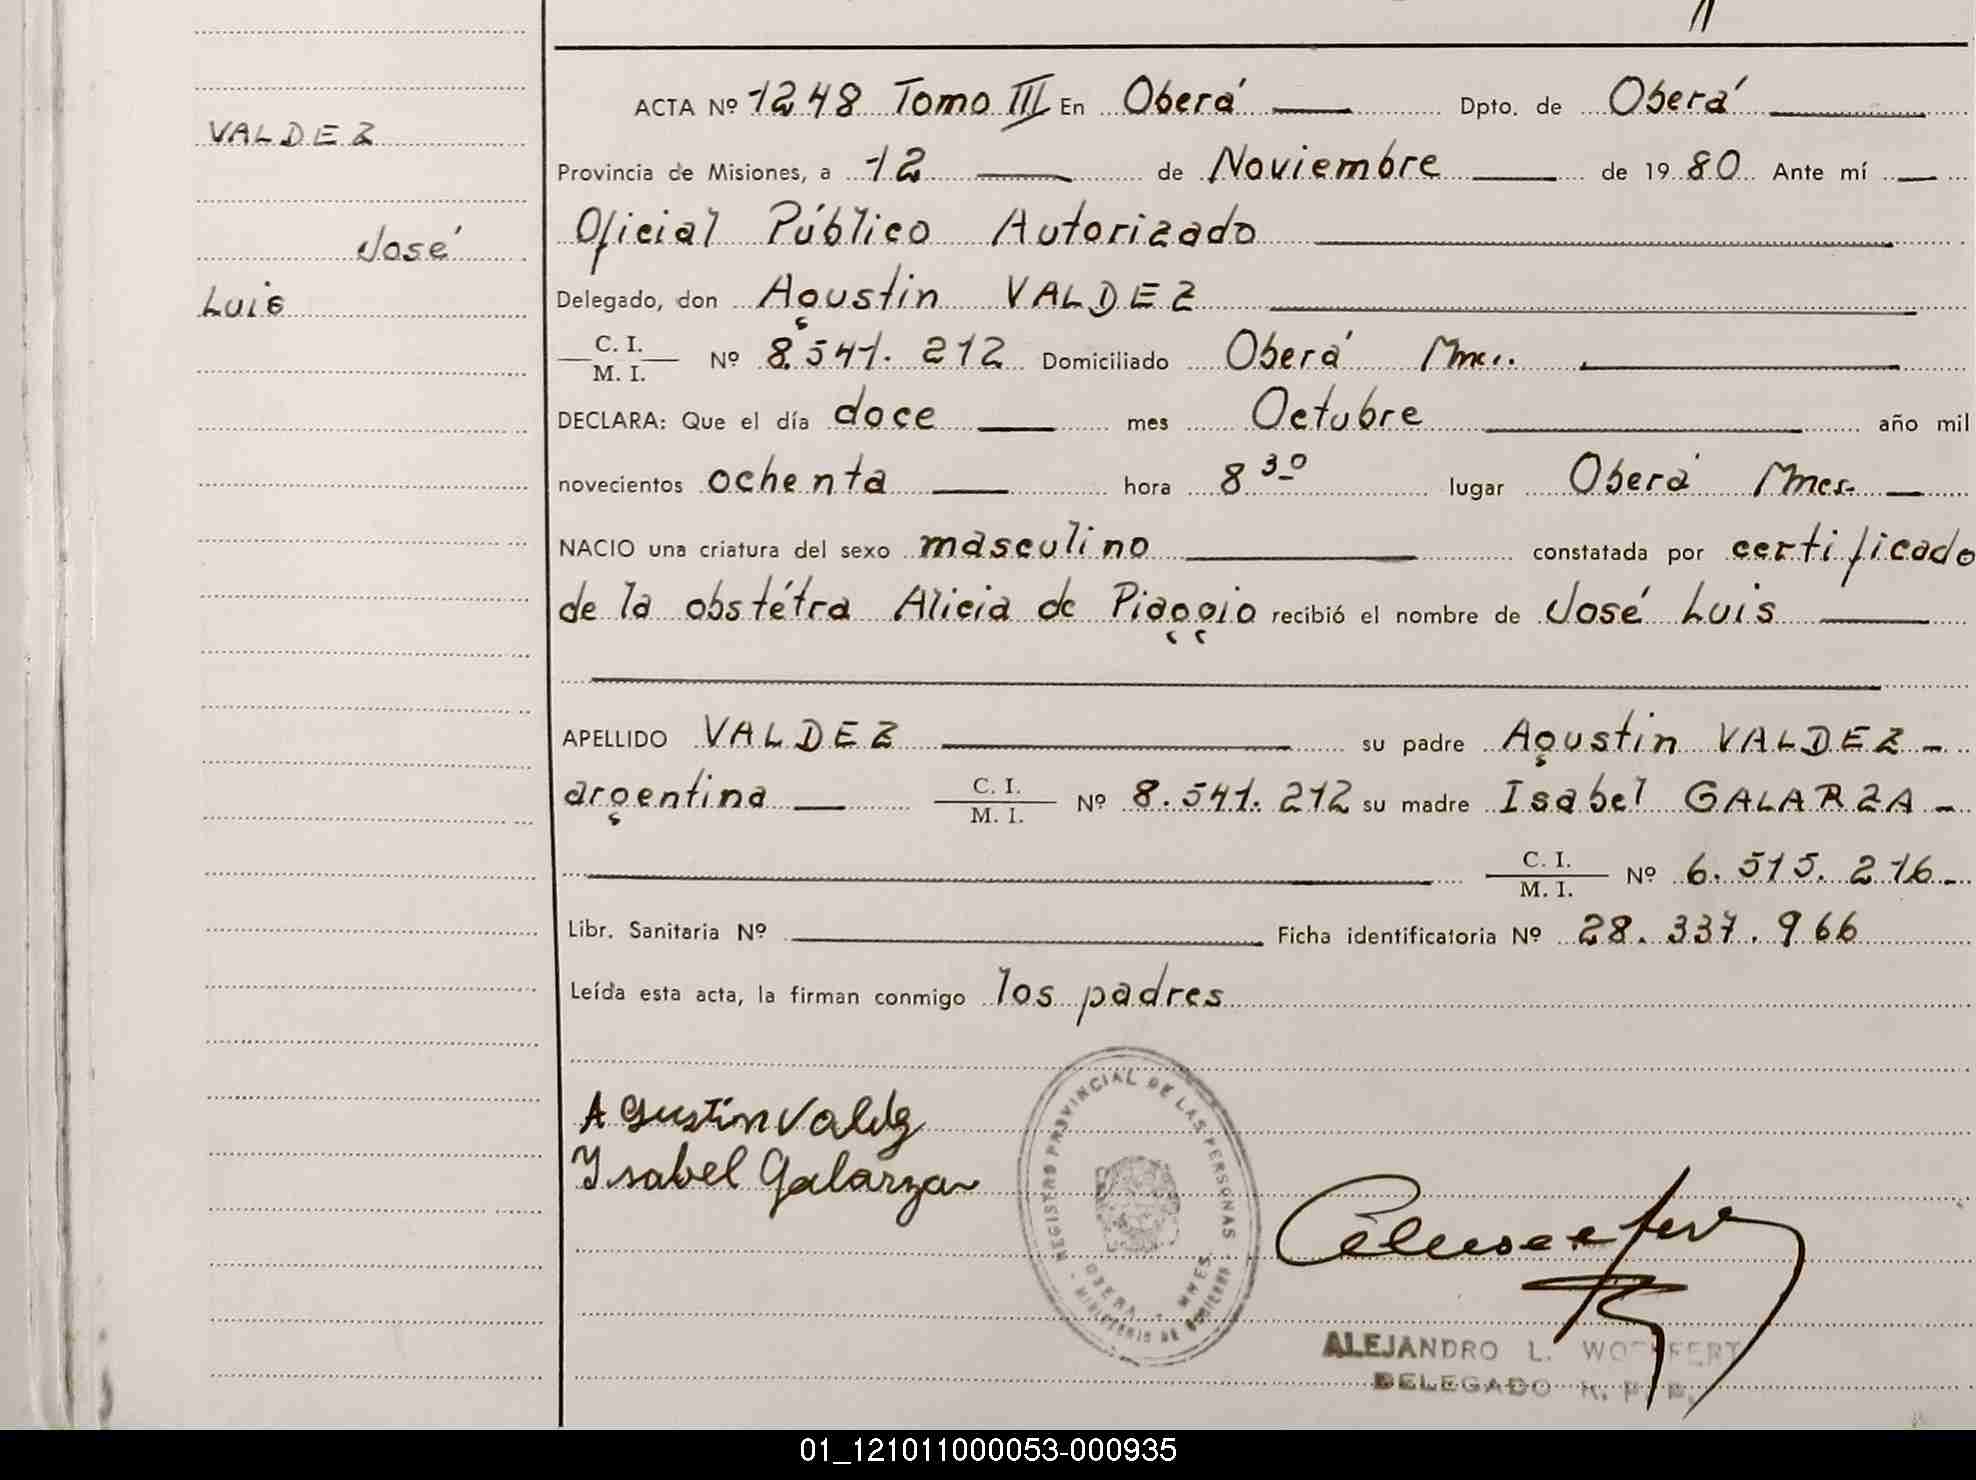 ACTA Nº 1248 Tomo III En Oberá Dpto. de Oberá
VALDEZ
Provincia de Misiones, a 12 de Noviembre de 1980 Ante mí
Oficial Público Autorizado
José
Luis
Delegado, don Agustin VALDEZ
C. I.
M. I.
Nº 8.541.212 Domiciliado Oberá Mnes.
DECLARA: Que el día doce mes Octubre año mil
novecientos ochenta hora 8 30 lugar Oberá Mnes.
NACIO una criatura del sexo masculino constatada por certificado
de la obstétra Alicia de Piaggio recibió el nombre de José Luis
APELLIDO VALDEZ su padre Agustin VALDEZ
argentina C. I. M. I. Nº 8.541.212 su madre Isabel GALARZA
C. I.
M. I.
Nº 6.515.216
Libr. Sanitaria Nº Ficha identificatoria Nº 28.337.966
Leída esta acta, la firman conmigo los padres
Agustin Valdez
Ysabel Galarza
REGISTRO PROVINCIAL DE LAS PERSONAS
OBERA - MNES.
- MINISTERIO DE GOBIERNO -
ALEJANDRO L.
DELEGADO R. P. P.
01_121011000053-000935